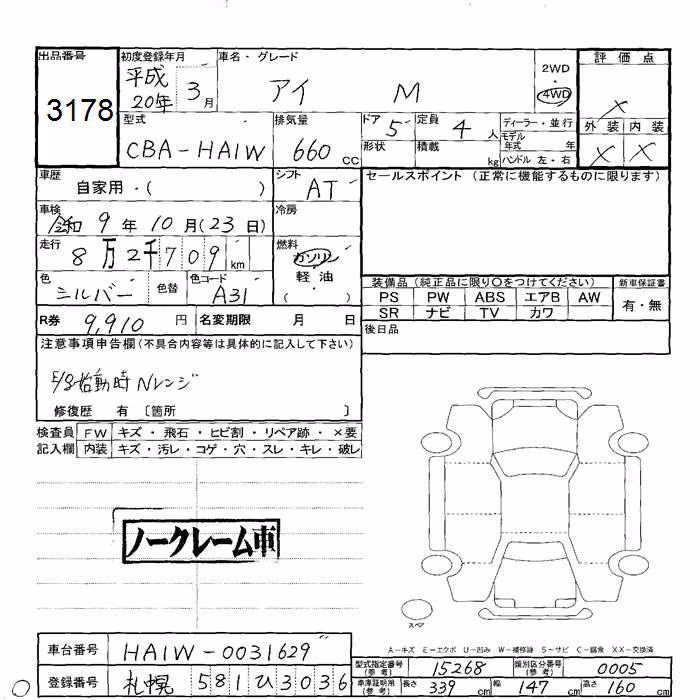 出品番号 初度登録年月 車名・グレード 評価点
3178 平成20年 3月 アイ M 2WD・4WD ×
型式 排気量 ドア 5 定員 4人 ディーラー・並行 外装 内装
CBA-HA1W 660cc 形状 積載 kg モデル年式 年 × ×
ハンドル 左・右
車歴 自家用・( ) シフト AT セールスポイント(正常に機能するものに限ります)
車検 令和9年10月(23日) 冷房
走行 8万2千709km 燃料 ガソリン 軽油 ( )
色 シルバー 色替 色コード A31
装備品(純正品に限り○をつけてください) 新車保証書
PS PW ABS エアB AW 有・無
SR ナビ TV カワ
R券 9,910円 名変期限 月 日 後日品
注意事項申告欄(不具合内容等は具体的に記入して下さい)
E/g始動時Nレンジ
修復歴 有 〔箇所 〕
検査員 FW キズ・飛石・ヒビ割・リペア跡・×要
記入欄 内装 キズ・汚レ・コゲ・穴・スレ・キレ・破レ
ノークレーム車
スペア
A-キズ E-エクボ U-凹み W-補修跡 S-サビ C-腐食 XX-交換済
車台番号 HA1W-0031629 型式指定番号(参考) 15268 類別区分番号(参考) 0005
登録番号 札幌 581 ひ 3036 車庫証明用(参考) 長さ 339cm 幅 147cm 高さ 160cm